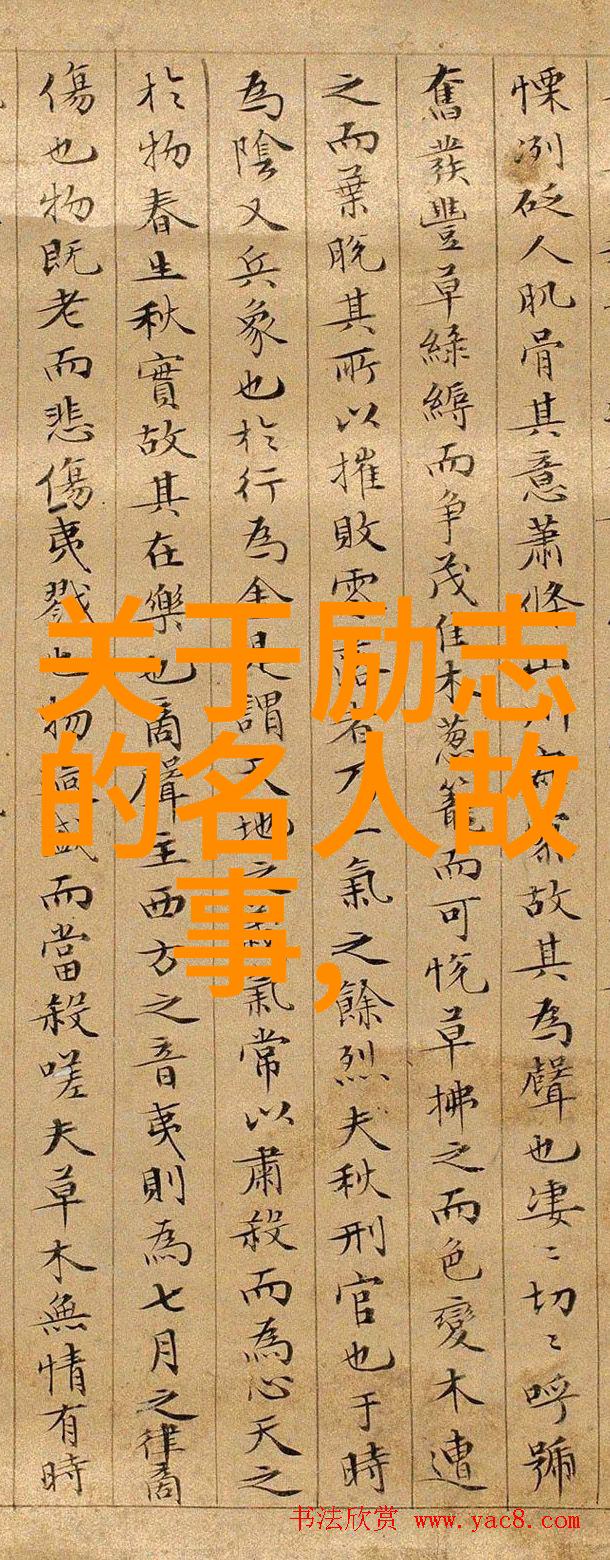 慄冽砭人肌骨其意蕭條山川寂寥故其為聲也凄〻切〻呼號
奮發豐草綠縟而爭茂佳木蔥籠而可悅草拂之而色變木遭
之而葉脫其所以摧敗零落者乃一氣之餘烈夫秋刑官也于時
為陰又兵象也於行為金是謂天地之義氣常以肅殺而為心天之
於物春生秋實故其在樂也商聲主西方之音夷則為七月之律商
傷也物既老而悲傷夷戮也物過盛而當殺嗟夫草木無情有時
关于励志
的名人故
事,
书法欣赏 www.yac8.com